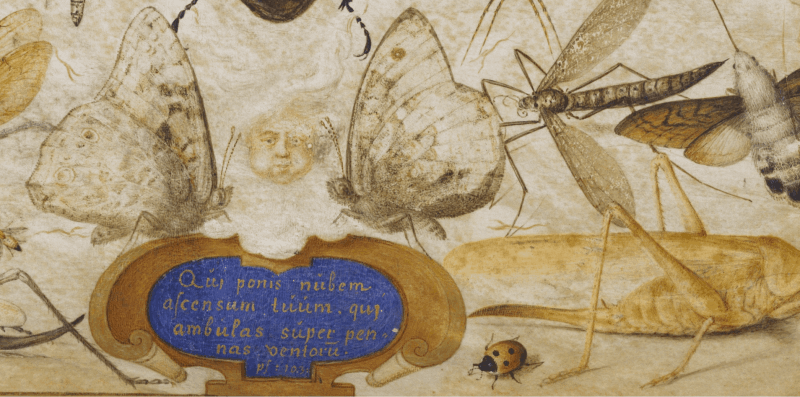 Qui ponis nūbem
ascensum tūūm, qui
ambulas sūper pen,
nas ventorū.
ps. 103.